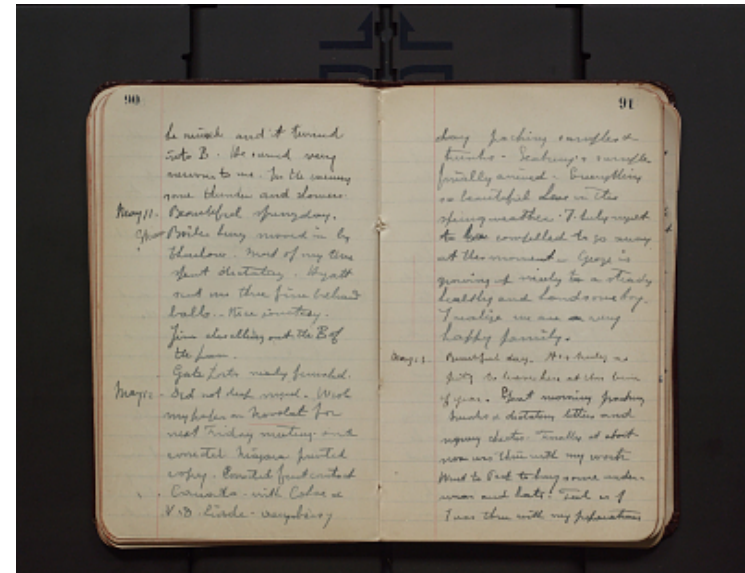 90
be much and it turned
into B. He seemed very
nervous to me. In the evening
some thunder and showers.
May 11. Beautiful spring day.
Boiler being moved in by
most of my time
spent dictating. Hyatt
sent me three fine billiard
balls. Nice courtesy.
Jim chiselling out the B of
the
Gate Posts nearly finished.
May 12 - Did not sleep enough. Wrote
my paper on Novolak for
next Friday meeting and
corrected Niagara printed
copy.
Canada - with &
V. B. - very busy
91
day packing samples &
trunks - Seabury's samples
finally arrived - Everything
so beautiful here in this
spring weather. I help myself
to be compelled to go away
at this moment. George is
growing up nicely to a steady
healthy and handsome boy.
I realize we are a very
happy family.
May 13. Beautiful day. It is truly a
pity to leave here at this time
of year. Spent morning packing
trunks & dictating letters and
signing Finally at about
noon was thru with my work
Went to to buy some under-
wear and hats. Feel as if
I was thru with my preparations